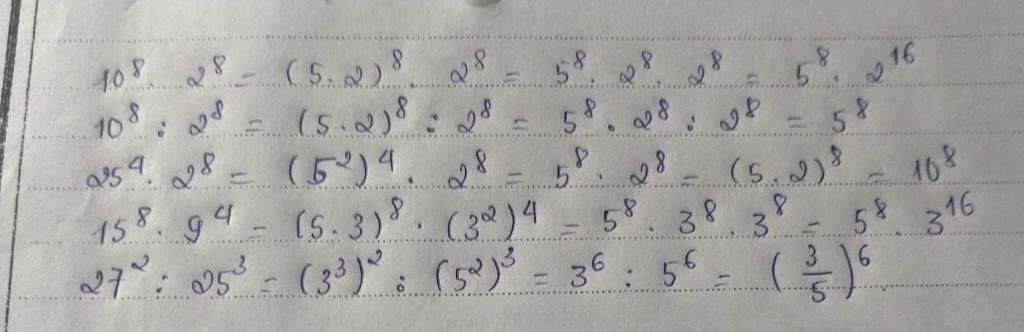 10⁸ . 2⁸ = (5.2)⁸ . 2⁸ = 5⁸ . 2⁸ . 2⁸ = 5⁸ . 2¹⁶
10⁸ : 2⁸ = (5.2)⁸ : 2⁸ = 5⁸ . 2⁸ : 2⁸ = 5⁸
25⁴ . 2⁸ = (5²)⁴ . 2⁸ = 5⁸ . 2⁸ = (5.2)⁸ = 10⁸
15⁸ . 9⁴ = (5.3)⁸ . (3²)⁴ = 5⁸ . 3⁸ . 3⁸ = 5⁸ . 3¹⁶
27² : 25³ = (3³)² : (5²)³ = 3⁶ : 5⁶ = (3/5)⁶